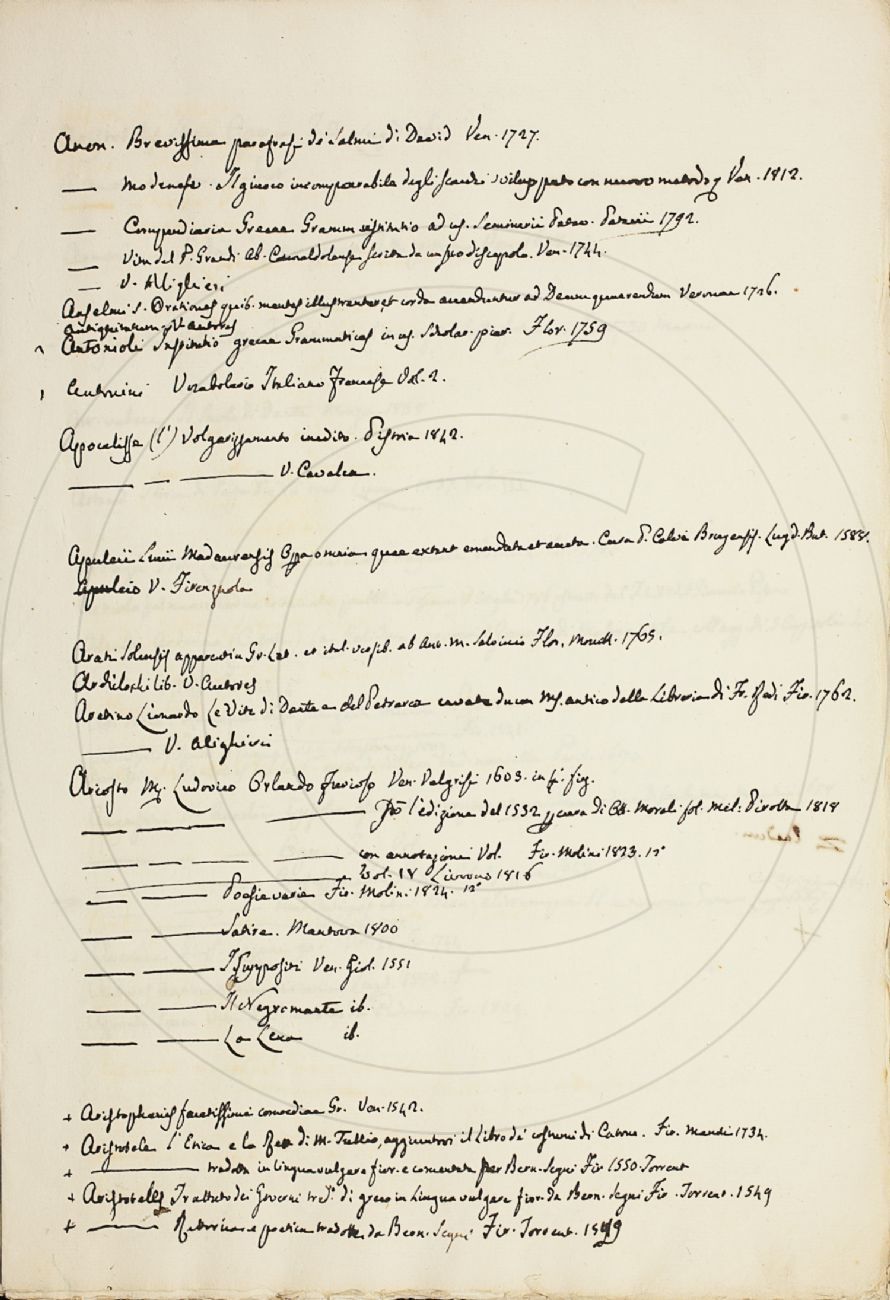 Anon. Brevissima parafrasi de' Salmi di David Ven. 1727.
— Modenese. Il giuoco incomparabile degli scacchi sviluppato con nuovo metodo Ven. 1812.
— Compendiaria Graecae Gramm. institutio ad us. Seminarii Patav. Patavii 1792.
— Vita del P. Grandi Ab. Camaldolense scritta da un suo discepolo. Ven. 1744.
— V. Allighieri
Anselmi S. Orationes quib. mentes illustrantur, et corda accenduntur ad Deum quaerendum Veronae 1726.
Antiquitatum V. autores
Antonioli Institutio graecae Grammatices in us. Scholar. piar. Flor. 1759
Antonini Vocabolario Italiano Francese Vol. 2.
Apocalisse (l') Volgarizzamento inedito. Pistoia 1842.
— — — V. Cavalca.
Appuleii Lucii Madaurensis Opa omnia quae extant emendata et aucta. Cura P. Colvii Brugensis. Lugd. Bat. 1588.
Apuleio V. Firenzuola
Arati Solensis apparentia Gr. Lat. et ital. versib. ab Ant. M. Salvinio Flor. Mouck. 1765.
Archilochi lib. V. Autores
Aretino Lionardo Le Vite di Dante e del Petrarca cavate da un Ms. antico della Libreria di Fr. Redi Fir. 1762.
— V. Alighieri
Ariosto M. Ludovico Orlando Furioso Ven. Valgrisi 1603. in 4°. fig.
— — — l'edizione del 1532 per cura di Ott. Morali fol. Mil. Pirotta 1818
— — — — con annotazioni Vol. Fir. Molini 1823. 12°
— Vol. 18 Livorno 1816
— — Poesie varie Fir. Molini 1824. 12°
— — Satire. Mantova 1800
— — I Suppositi Ven. Giol. 1551
— — Il Negromante ib.
— — La Lena ib.
+ Aristophanis facetissimi comoediae Gr. Ven. 1542.
+ Aristotele l'Etica e la di M. Tullio, aggiuntovi il Libro de' costumi di Catone. Fir. Manni 1734.
+ — tradotta in lingua vulgare fior. e comentata per Bern. Segni Fir 1550. Torrent
+ Aristoteles Trattato dei Governi trad. di greco in Lingua vulgare fior. da Bern. Segni Fir. Torrent. 1549
+ — Rettorica e poetica tradotte da Bern. Segni Fir. Torrent. 1549